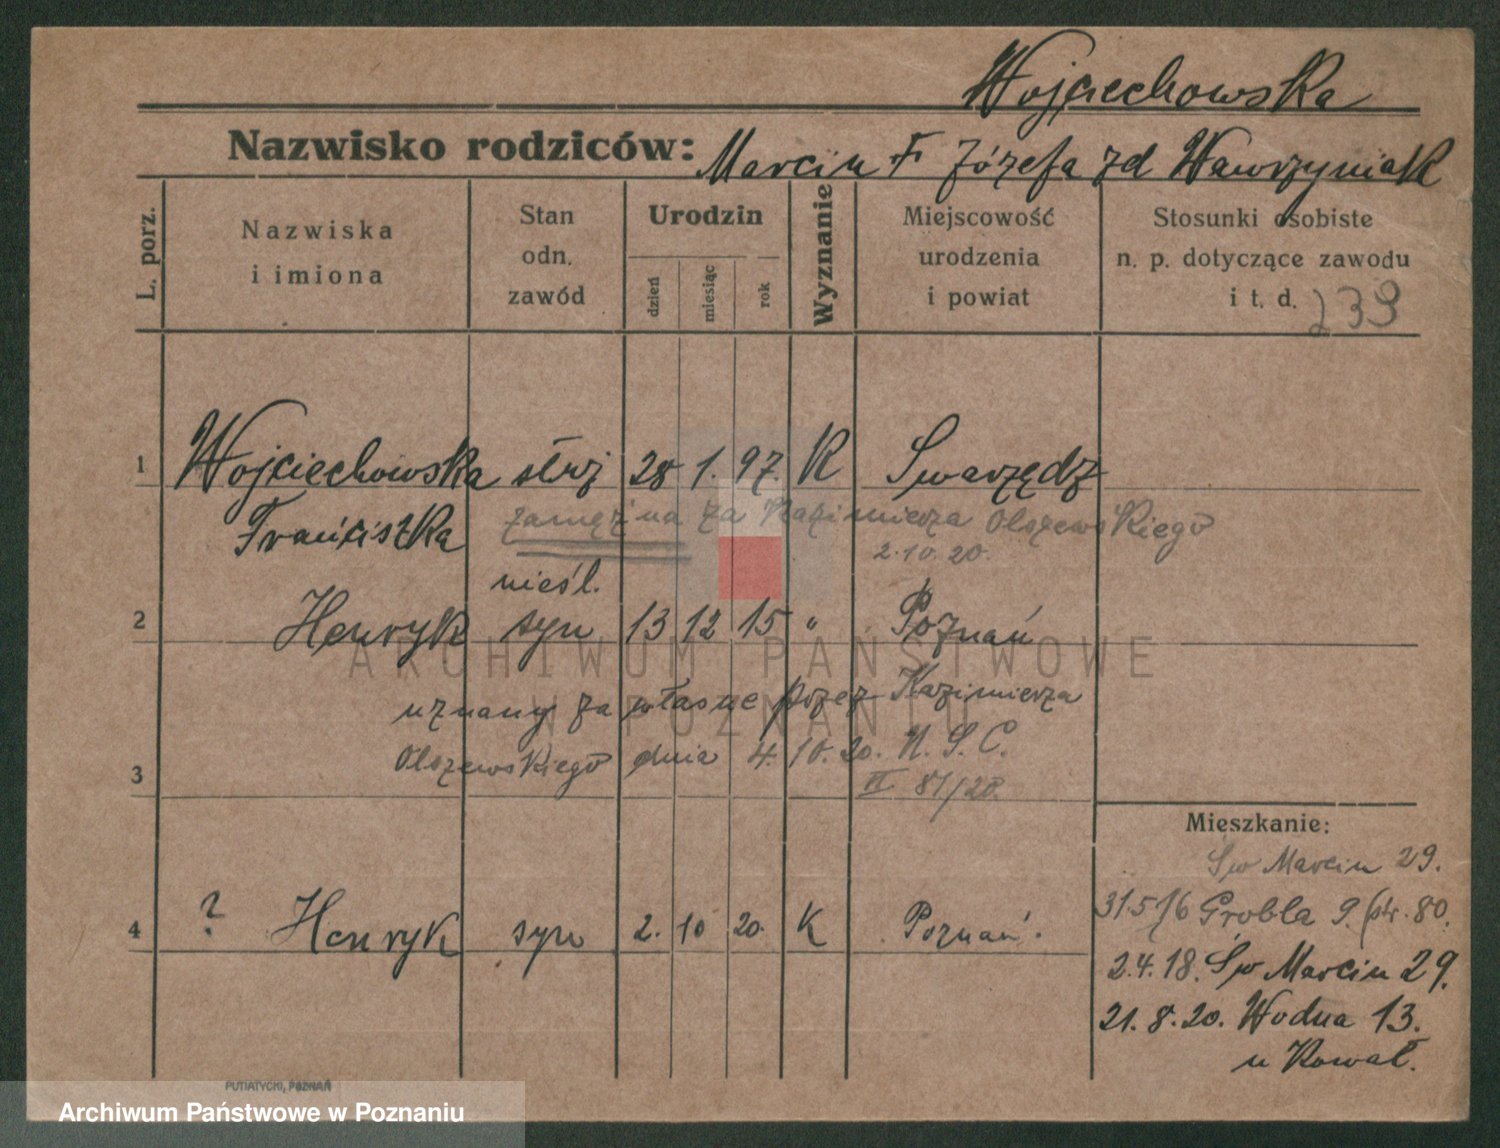 Wojciechowska
Nazwisko rodziców: Marcin + Józefa zd Wawrzyniak
L. porz.
Nazwiska
i imiona
Stan
odn.
zawód
Urodzin
dzień
miesiąc
rok
Wyznanie
Miejscowość
urodzenia
i powiat
Stosunki osobiste
n. p. dotyczące zawodu
i t. d.
239
1 Wojciechowska 28 1. 97. K Swarzędz
Franciszka zamężna za Kazimierza Olszewskiego
2.10.20.
nieśl.
2 Henryk syn 13 12 15 " Poznań
uznany za własne przez Kazimierza
3 Olszewskiego dnia 4. 10. 20. U. S. C.
VI 81/20.
Mieszkanie:
Św Marcin 29.
31.5.16 Grobla 9. ptr. 80.
4 ? Henryk syn 2. 10 20. K Poznań.
2.4.18. Św Marcin 29.
21.8.20. Wodna 13.
u Kował.
PUTIATYCKI, POZNAŃ
ARCHIWUM PAŃSTWOWE
W POZNANIU
Archiwum Państwowe w Poznaniu